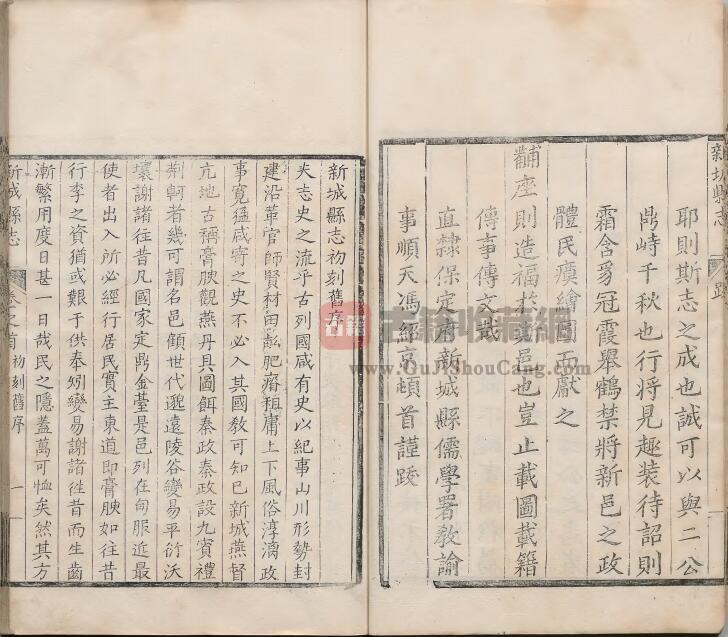 耶則斯志之成也誠可以與二公
鼎峙千秋也行將見趣裝待詔則
霜含豸冠霞舉鶴禁將新邑之政
體民瘼繪圖而獻之
黼座則造福於茲邑也豈止載圖載籍
傳事傳文哉
直隸保定府新城縣儒學署教諭
事順天馮紹京頓首謹跋
新城縣志初刻舊序
夫志史之流乎古列國咸有史以紀事山川形勢封
建沿革官師賢材田賦肥瘠租庸上下風俗淳漓政
事寬猛咸寄之史不必入其國教可知已新城燕督
亢地古稱膏腴觀燕丹具圖餌秦政秦政設九賓禮
荆軻者幾可謂名邑顧世代邈遠陵谷變易平衍沃
壤謝諸往昔凡國家定鼎金臺是邑列在甸服近最
使者出入所必經行居民實主東道即膏腴如往昔
行李之資猶或艱于供奉矧變易謝諸往昔而生齒
漸繁用度日甚一日哉民之隱蓋萬可恤矣然其方
新城縣志
卷之首
初刻舊序
一
新城縣志
跋
古籍收藏網
www.GuJiShouCang.com